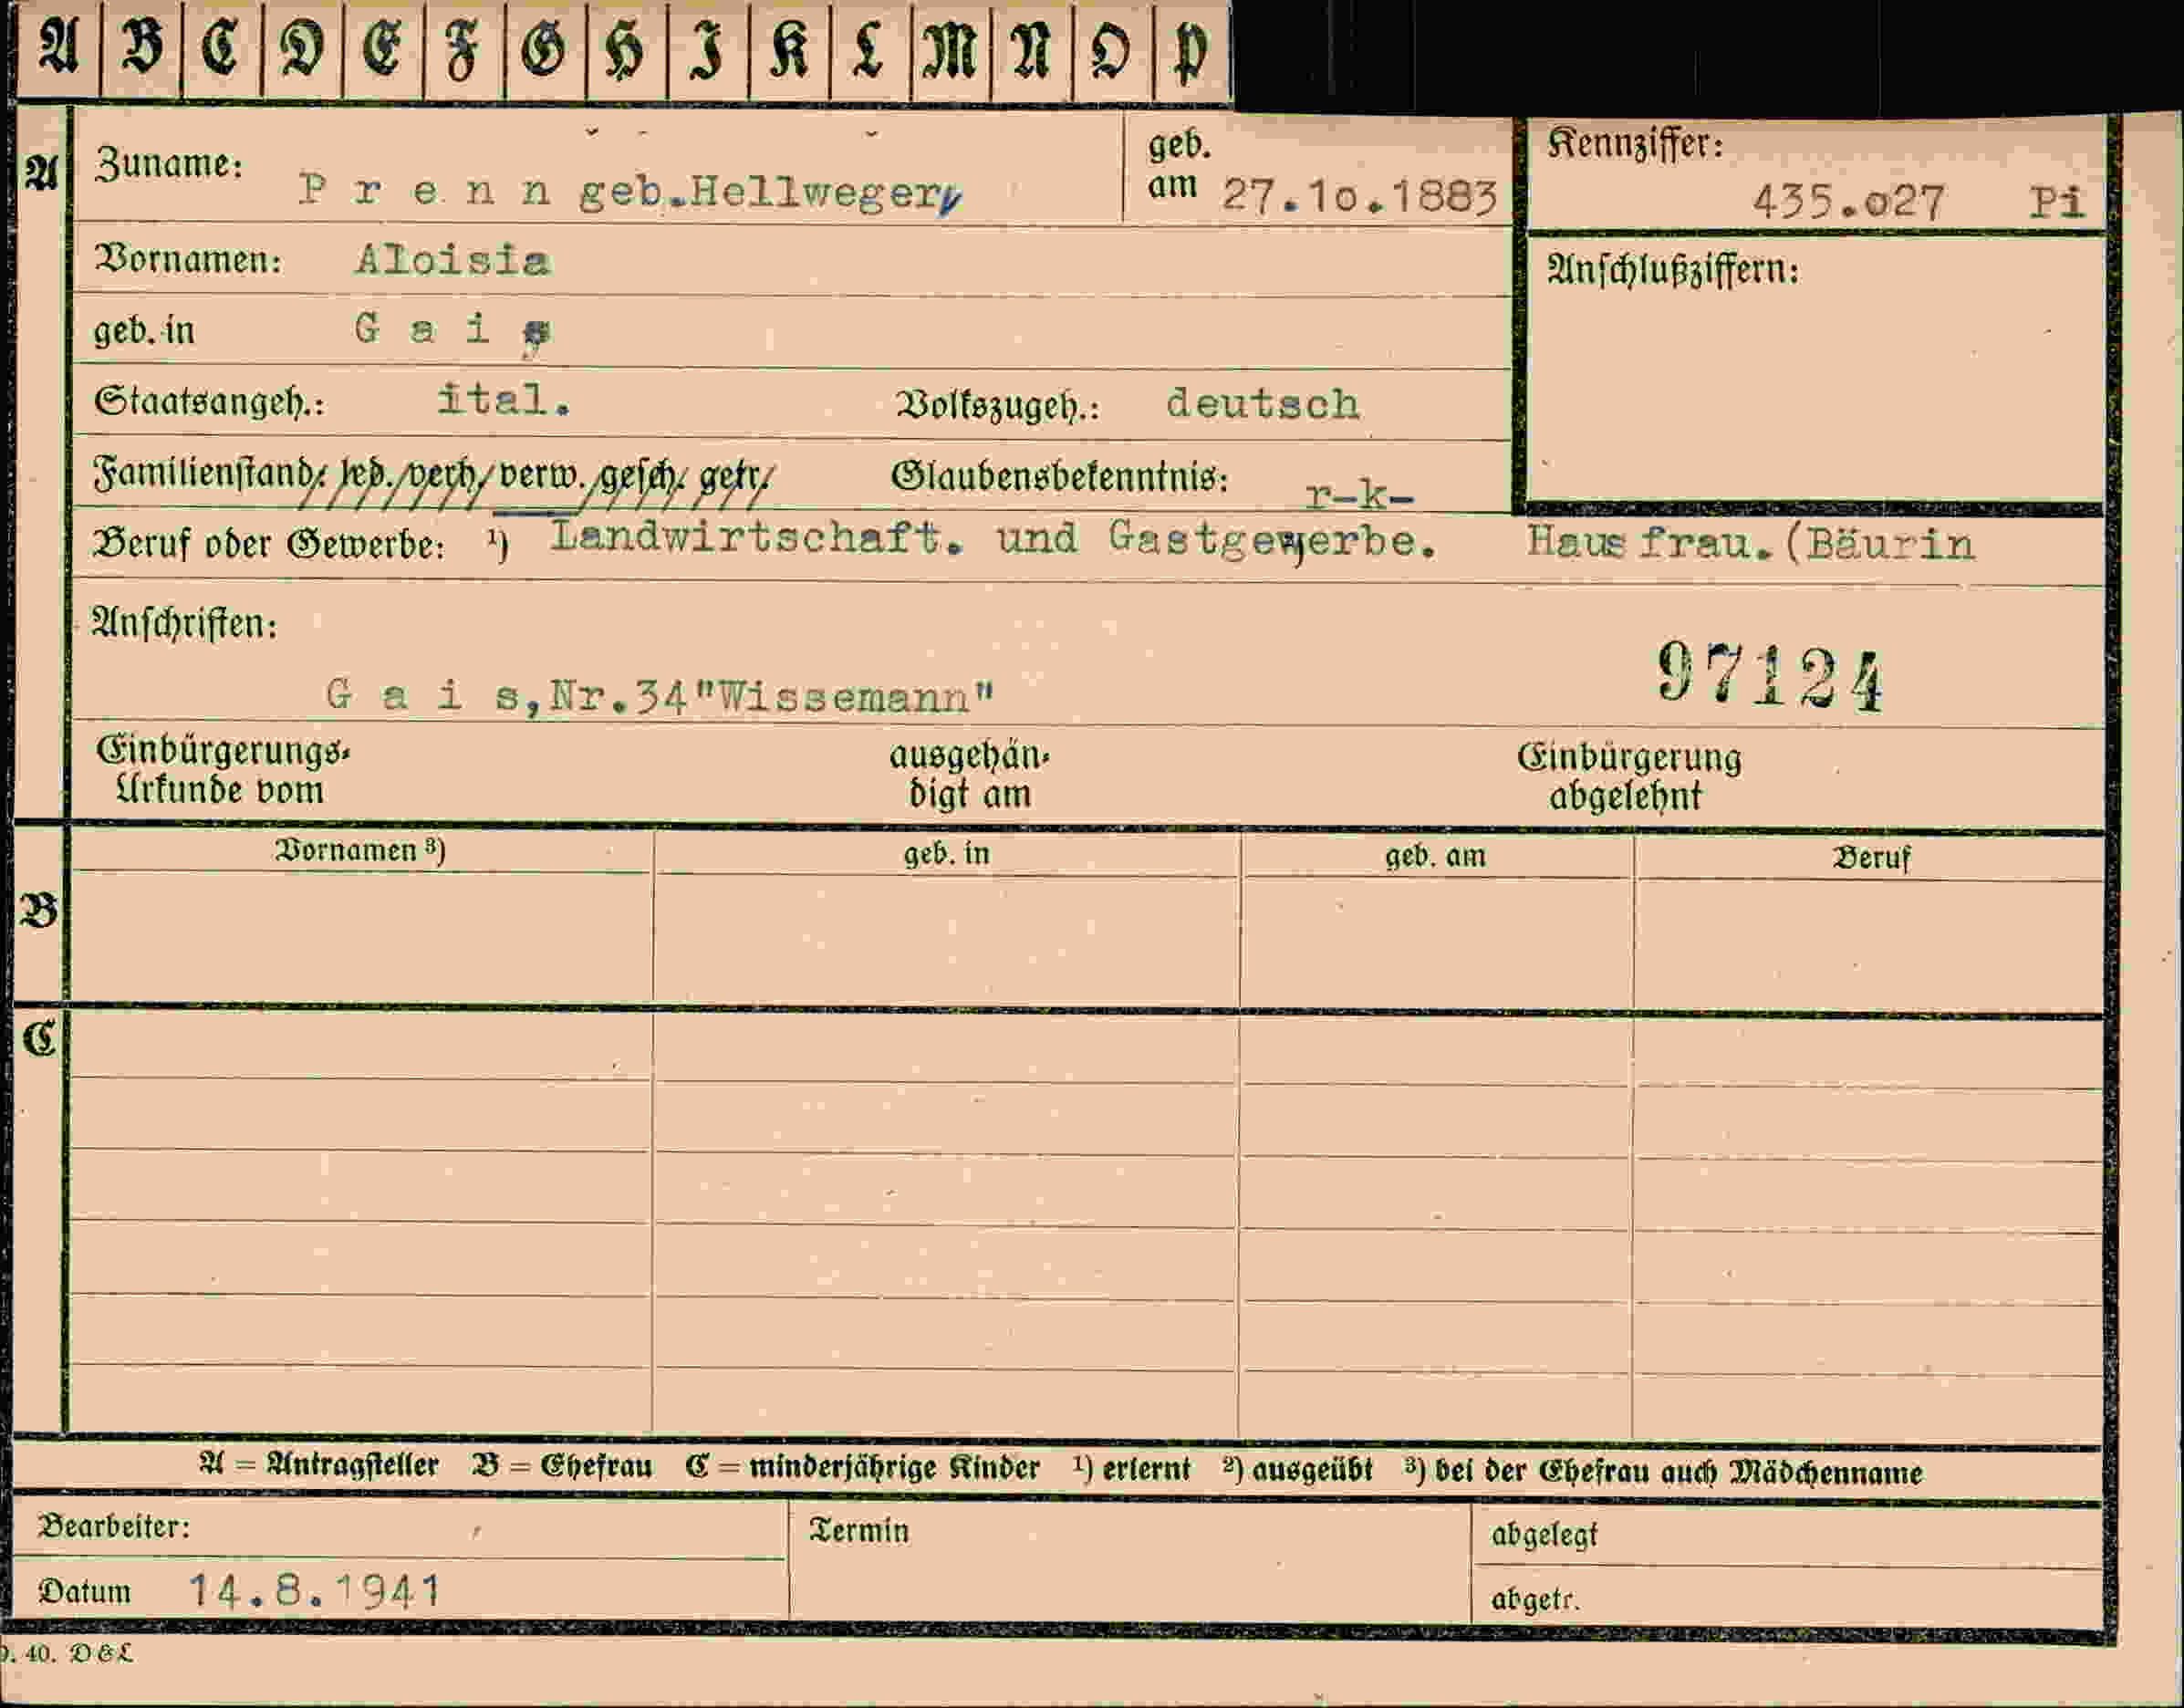 A B C D E F G H I K L M N O P
A Zuname: P r e n n geb.Hellweger geb. am 27.10.1883 Kennziffer: 435.o27 Pi
Vornamen: Aloisia Anschlußziffern:
geb. in G a i s
Staatsangeh.: ital. Volkszugeh.: deutsch
Familienstand: led. verh. verw. gesch. getr. Glaubensbekenntnis: r-k-
Beruf oder Gewerbe: ¹) Landwirtschaft. und Gastgewerbe. Hausfrau.(Bäurin
Anschriften:
97124
G a i s,Nr.34"Wissemann"
Einbürgerungs- ausgehän- Einbürgerung
Urkunde vom digt am abgelehnt
Vornamen ³) geb. in geb. am Beruf
B
C
A = Antragsteller B = Ehefrau C = minderjährige Kinder ¹) erlernt ²) ausgeübt ³) bei der Ehefrau auch Mädchenname
Bearbeiter: Termin abgelegt
Datum 14.8.1941 abgetr.
40. D&L